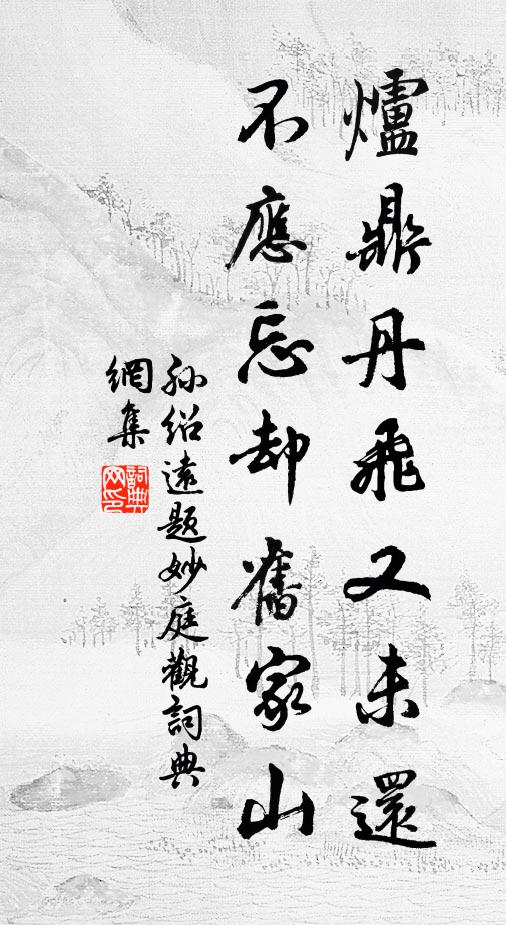 爐鼎丹飛又未還
不應忘却舊家山
孫紹遠題妙庭觀詞典
網集
詞典
網印